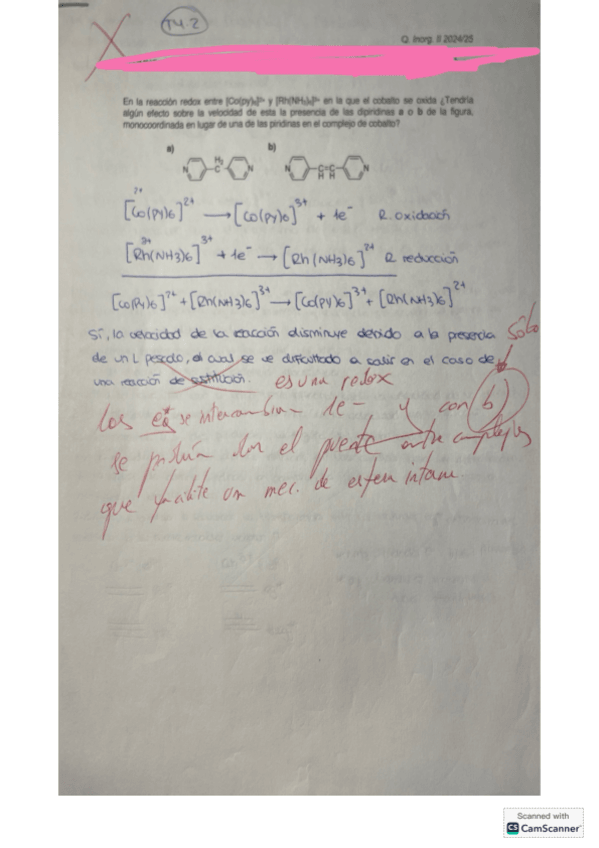 T4.2
Q. Inorg. II 2024/25
En la reacción redox entre [Co(py)₆]²⁺ y [Rh(NH₃)₆]³⁺ en la que el cobalto se oxida ¿Tendría
algún efecto sobre la velocidad de esta la presencia de las dipiridinas a o b de la figura,
monocoordinada en lugar de una de las piridinas en el complejo de cobalto?
a) b)
N H₂ C N N C=C H H N
2+
[Co(py)6]²⁺ → [Co(py)6]³⁺ + 1e⁻ R oxidación
3+
[Rh(NH3)6]³⁺ + 1e⁻ → [Rh(NH3)6]²⁺ R reducción
[Co(Py)6]²⁺ + [Rh(NH3)6]³⁺ → [Co(Py)6]³⁺ + [Rh(NH3)6]²⁺
Sí, la velocidad de la reacción disminuye debido a la presencia Sólo
de un L pesado, el cual se ve dificultado a salir en el caso de
una reacción de sustitución. es una redox
los se intercambian de - y con b)
se podría dar el puente entre complejos
que facilite un mec. de esfera interna
Scanned with
CS CamScanner